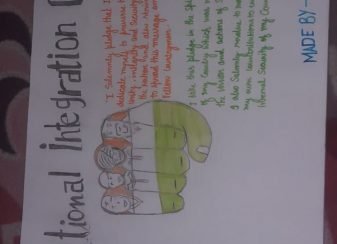 tional integration
I solemnly pledge that I
dedicate myself to preserve
unity, integrity and Security
the nation
to spread this message
fellow countrymen.
I take this pledge in the
of my Country which was
the vision and actions of
I also solemnly resolve to
my own contribution to
internal Security of my
MADE BY -